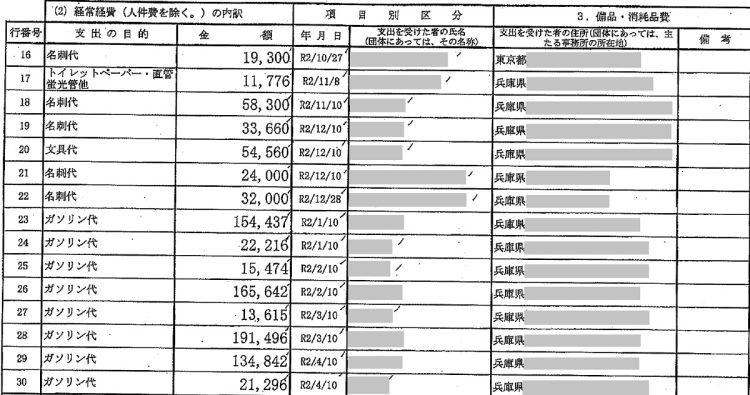 (2) 経常経費（人件費を除く。）の内訳 項目別区分 3．備品・消耗品費
行番号 支出の目的 金額 年月日 支出を受けた者の氏名 (団体にあっては、その名称) 支出を受けた者の住所(団体にあっては、主たる事務所の所在地) 備考
16 名刺代 19,300 R2/10/27 東京都
17 トイレットペーパー・直管蛍光管他 11,776 R2/11/8 兵庫県
18 名刺代 58,300 R2/11/10 兵庫県
19 名刺代 33,660 R2/12/10 兵庫県
20 文具代 54,560 R2/12/10 兵庫県
21 名刺代 24,000 R2/12/10 兵庫県
22 名刺代 32,000 R2/12/28 兵庫県
23 ガソリン代 154,437 R2/1/10 兵庫県
24 ガソリン代 22,216 R2/1/10 兵庫県
25 ガソリン代 15,474 R2/2/10 兵庫県
26 ガソリン代 165,642 R2/2/10 兵庫県
27 ガソリン代 13,615 R2/3/10 兵庫県
28 ガソリン代 191,496 R2/3/10 兵庫県
29 ガソリン代 134,842 R2/4/10 兵庫県
30 ガソリン代 21,296 R2/4/10 兵庫県